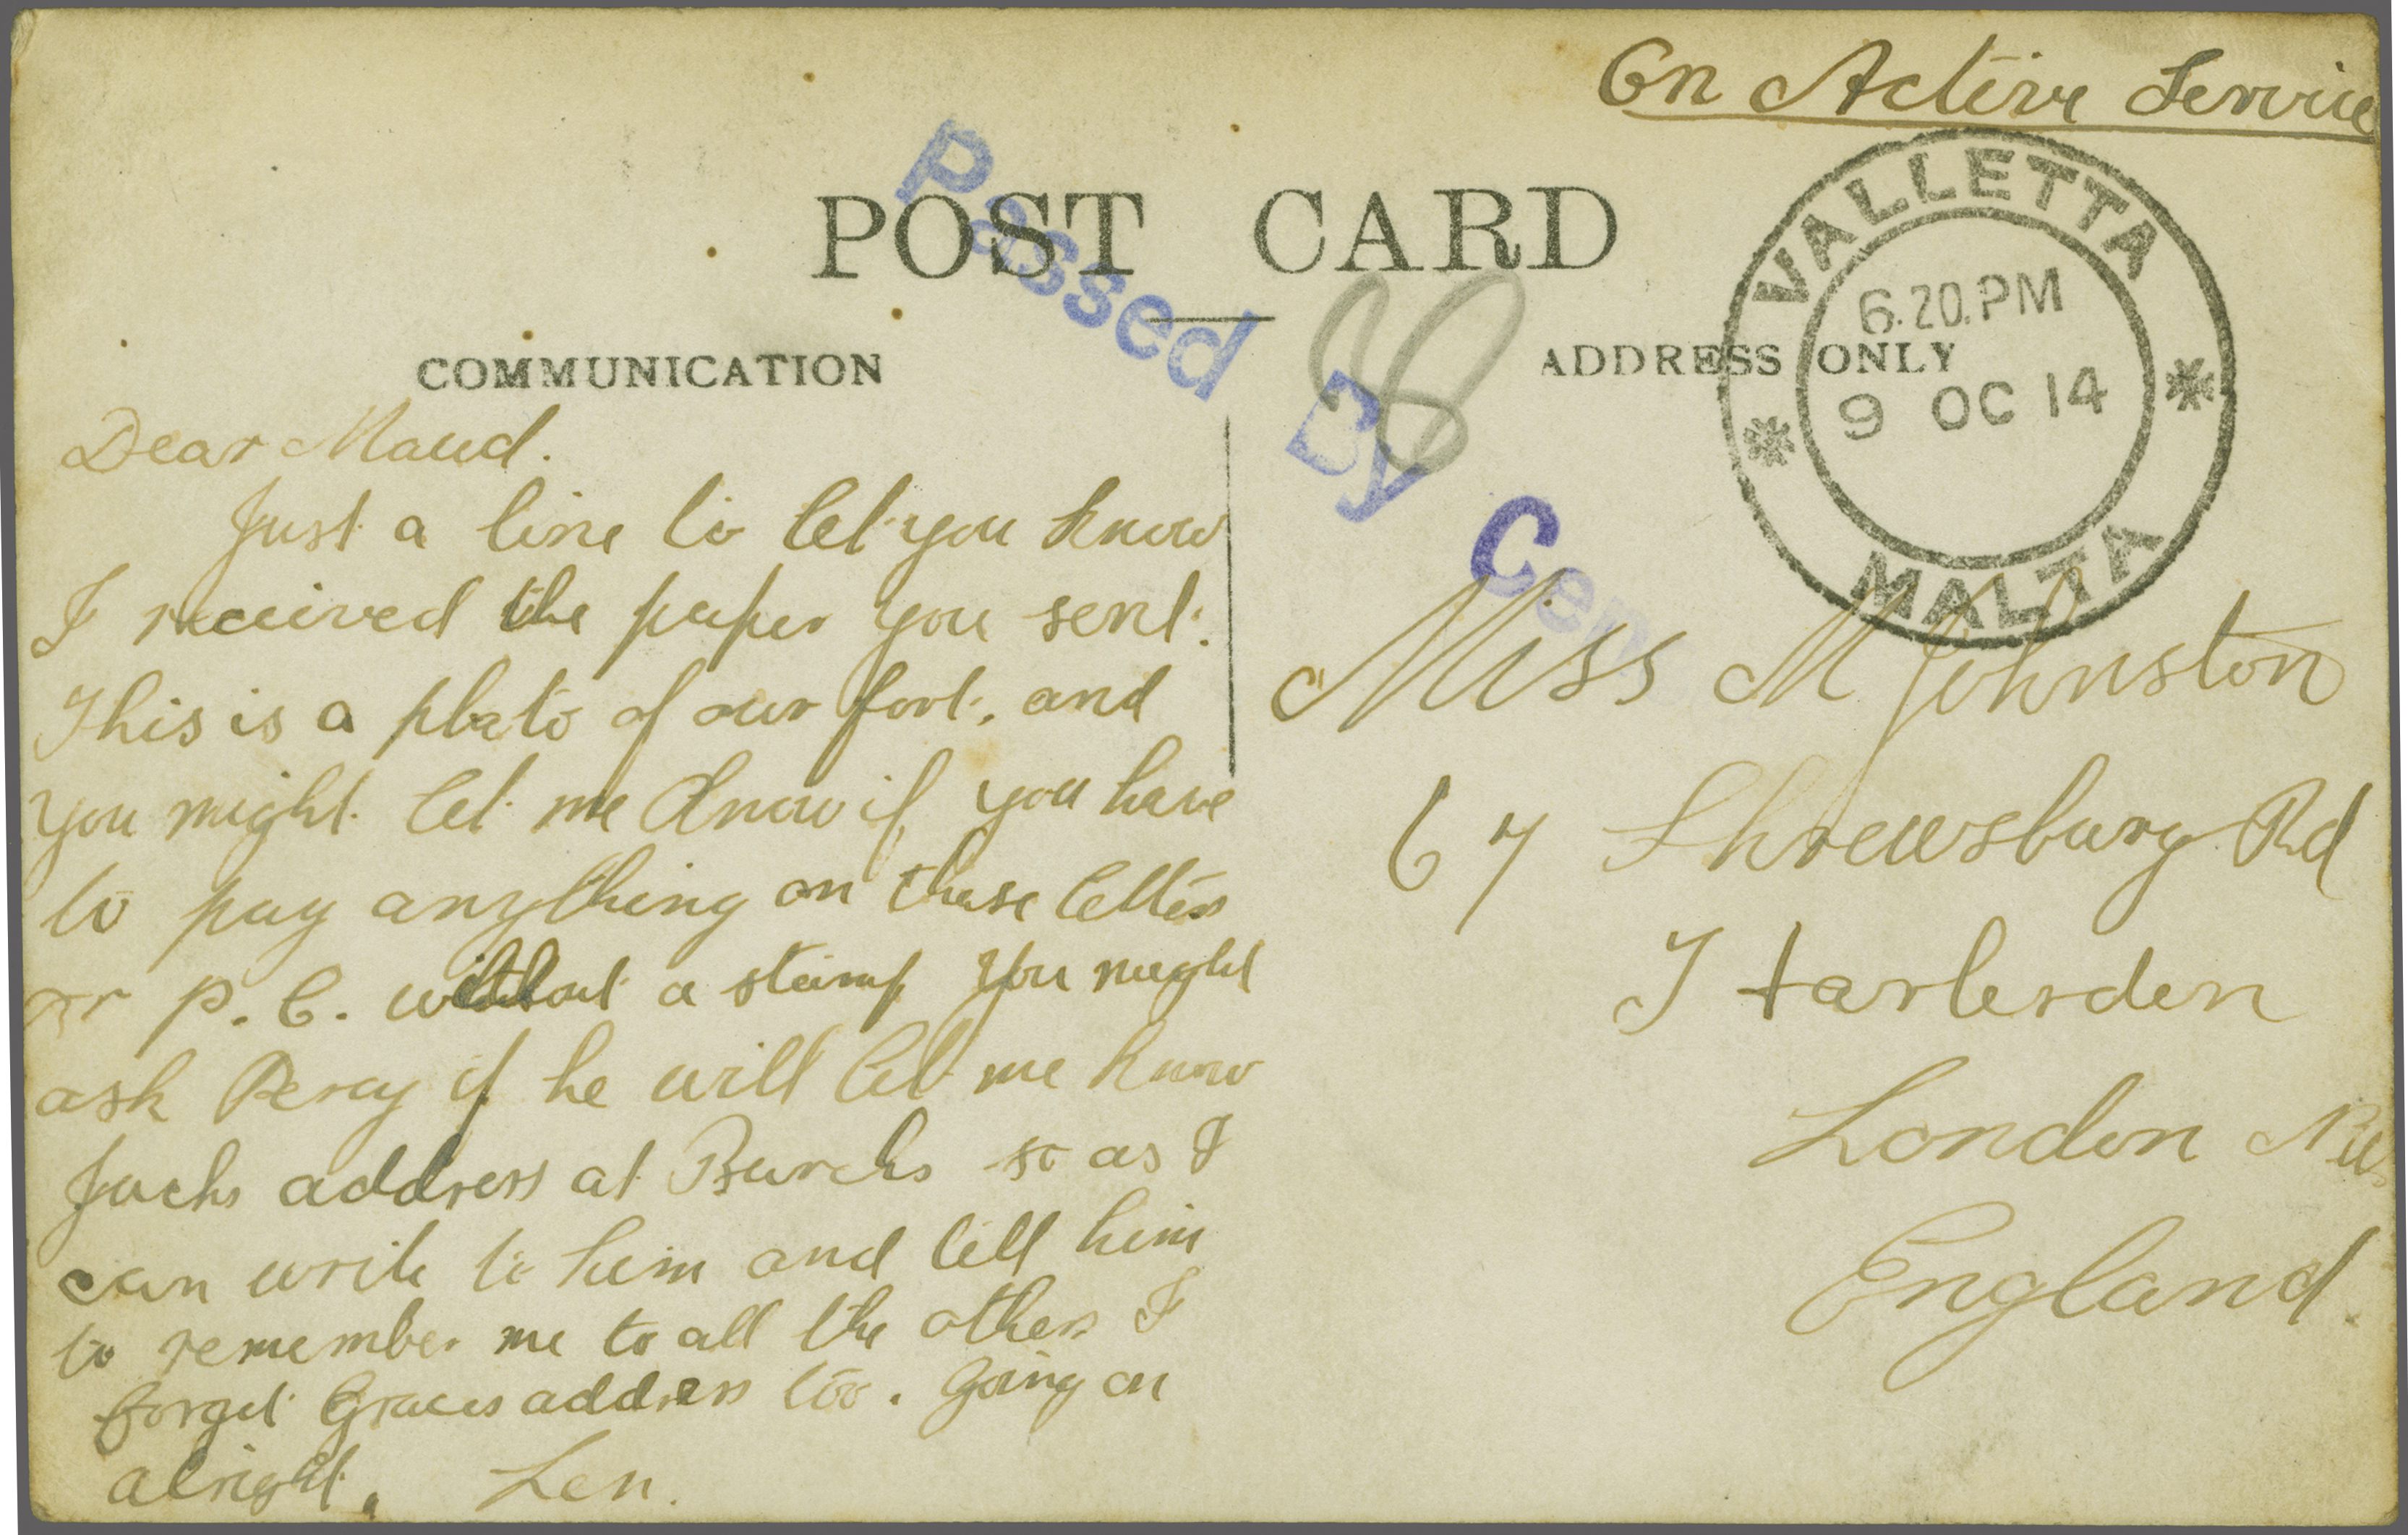 On Active Service
POST CARD
Passed By Cen
88
COMMUNICATION
ADDRESS ONLY
VALLETTA
6.20.PM
9 OC 14
MALTA
Dear Maud.
Just a line to let you know
I received the paper you sent.
This is a photo of our fort, and
you might let me know if you have
to pay anything on these letters
or P.C. without a stamp you might
ask Percy if he will let me know
Jacks address at Burchs so as I
can write to him and tell him
to remember me to all the others I
forget Graces address too. Going on
alright. Len.
Miss M Johnston
67 Shrewsbury Rd
Harlesden
London NW
England.